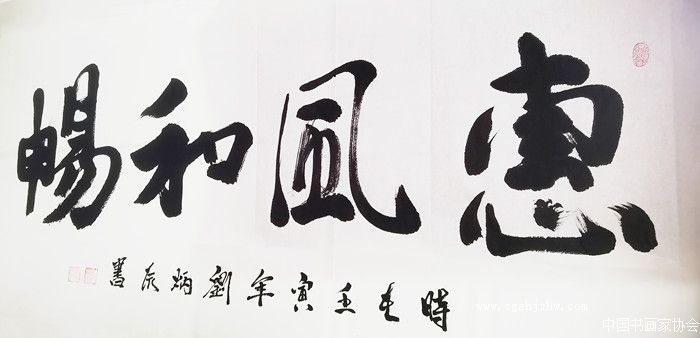 惠風和暢
時在壬寅年劉炳書
中国书画家协会